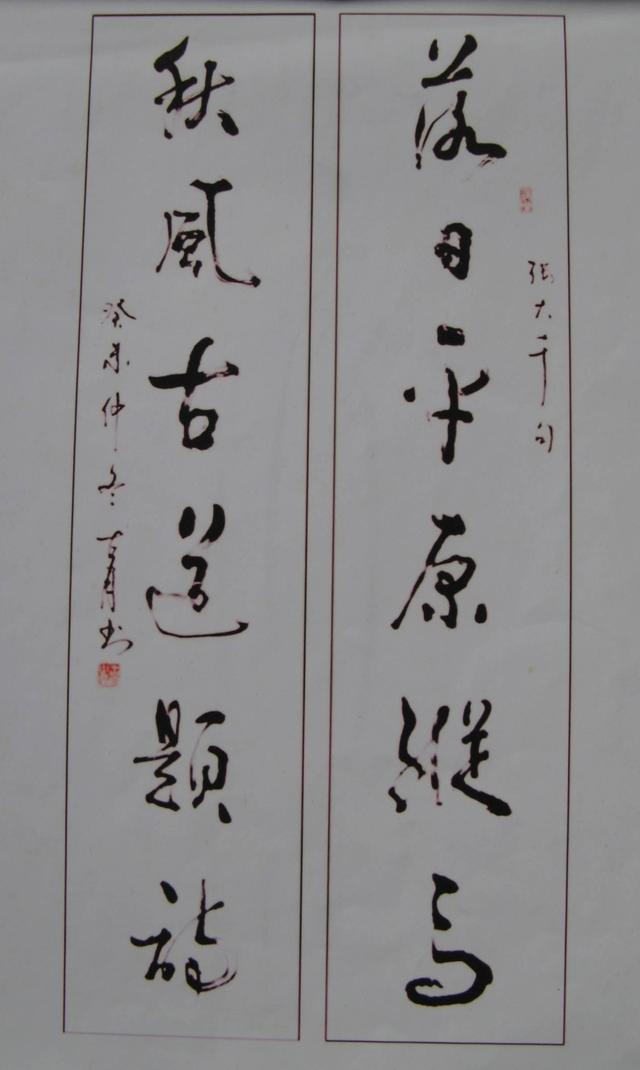 落日平原縱馬
張大千句
秋風古道題詩
癸未仲冬 書